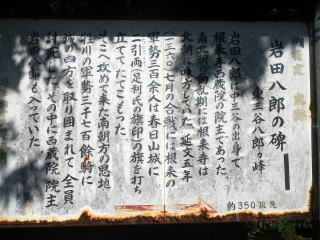 岩田八郎の碑
東三谷八郎ヵ峰
岩田八郎は中三谷の出身で
根来寺西蔵院の院主であった。
南北朝動乱期には根来寺は
北朝に味方をしていた。延文五年
一三六〇 七月の合戦には根来の
軍勢三百余人は春日山城に
二引両(足利氏の旗印)の旗を打ち
立ててたてこもった。
そこへ攻めて来た南朝方の恩地
牲川の軍勢三千七百餘騎に
城の四方を取り囲まれて全員
討死した。その中に西蔵院院主
岩田八郎も入っていた。
約350現先